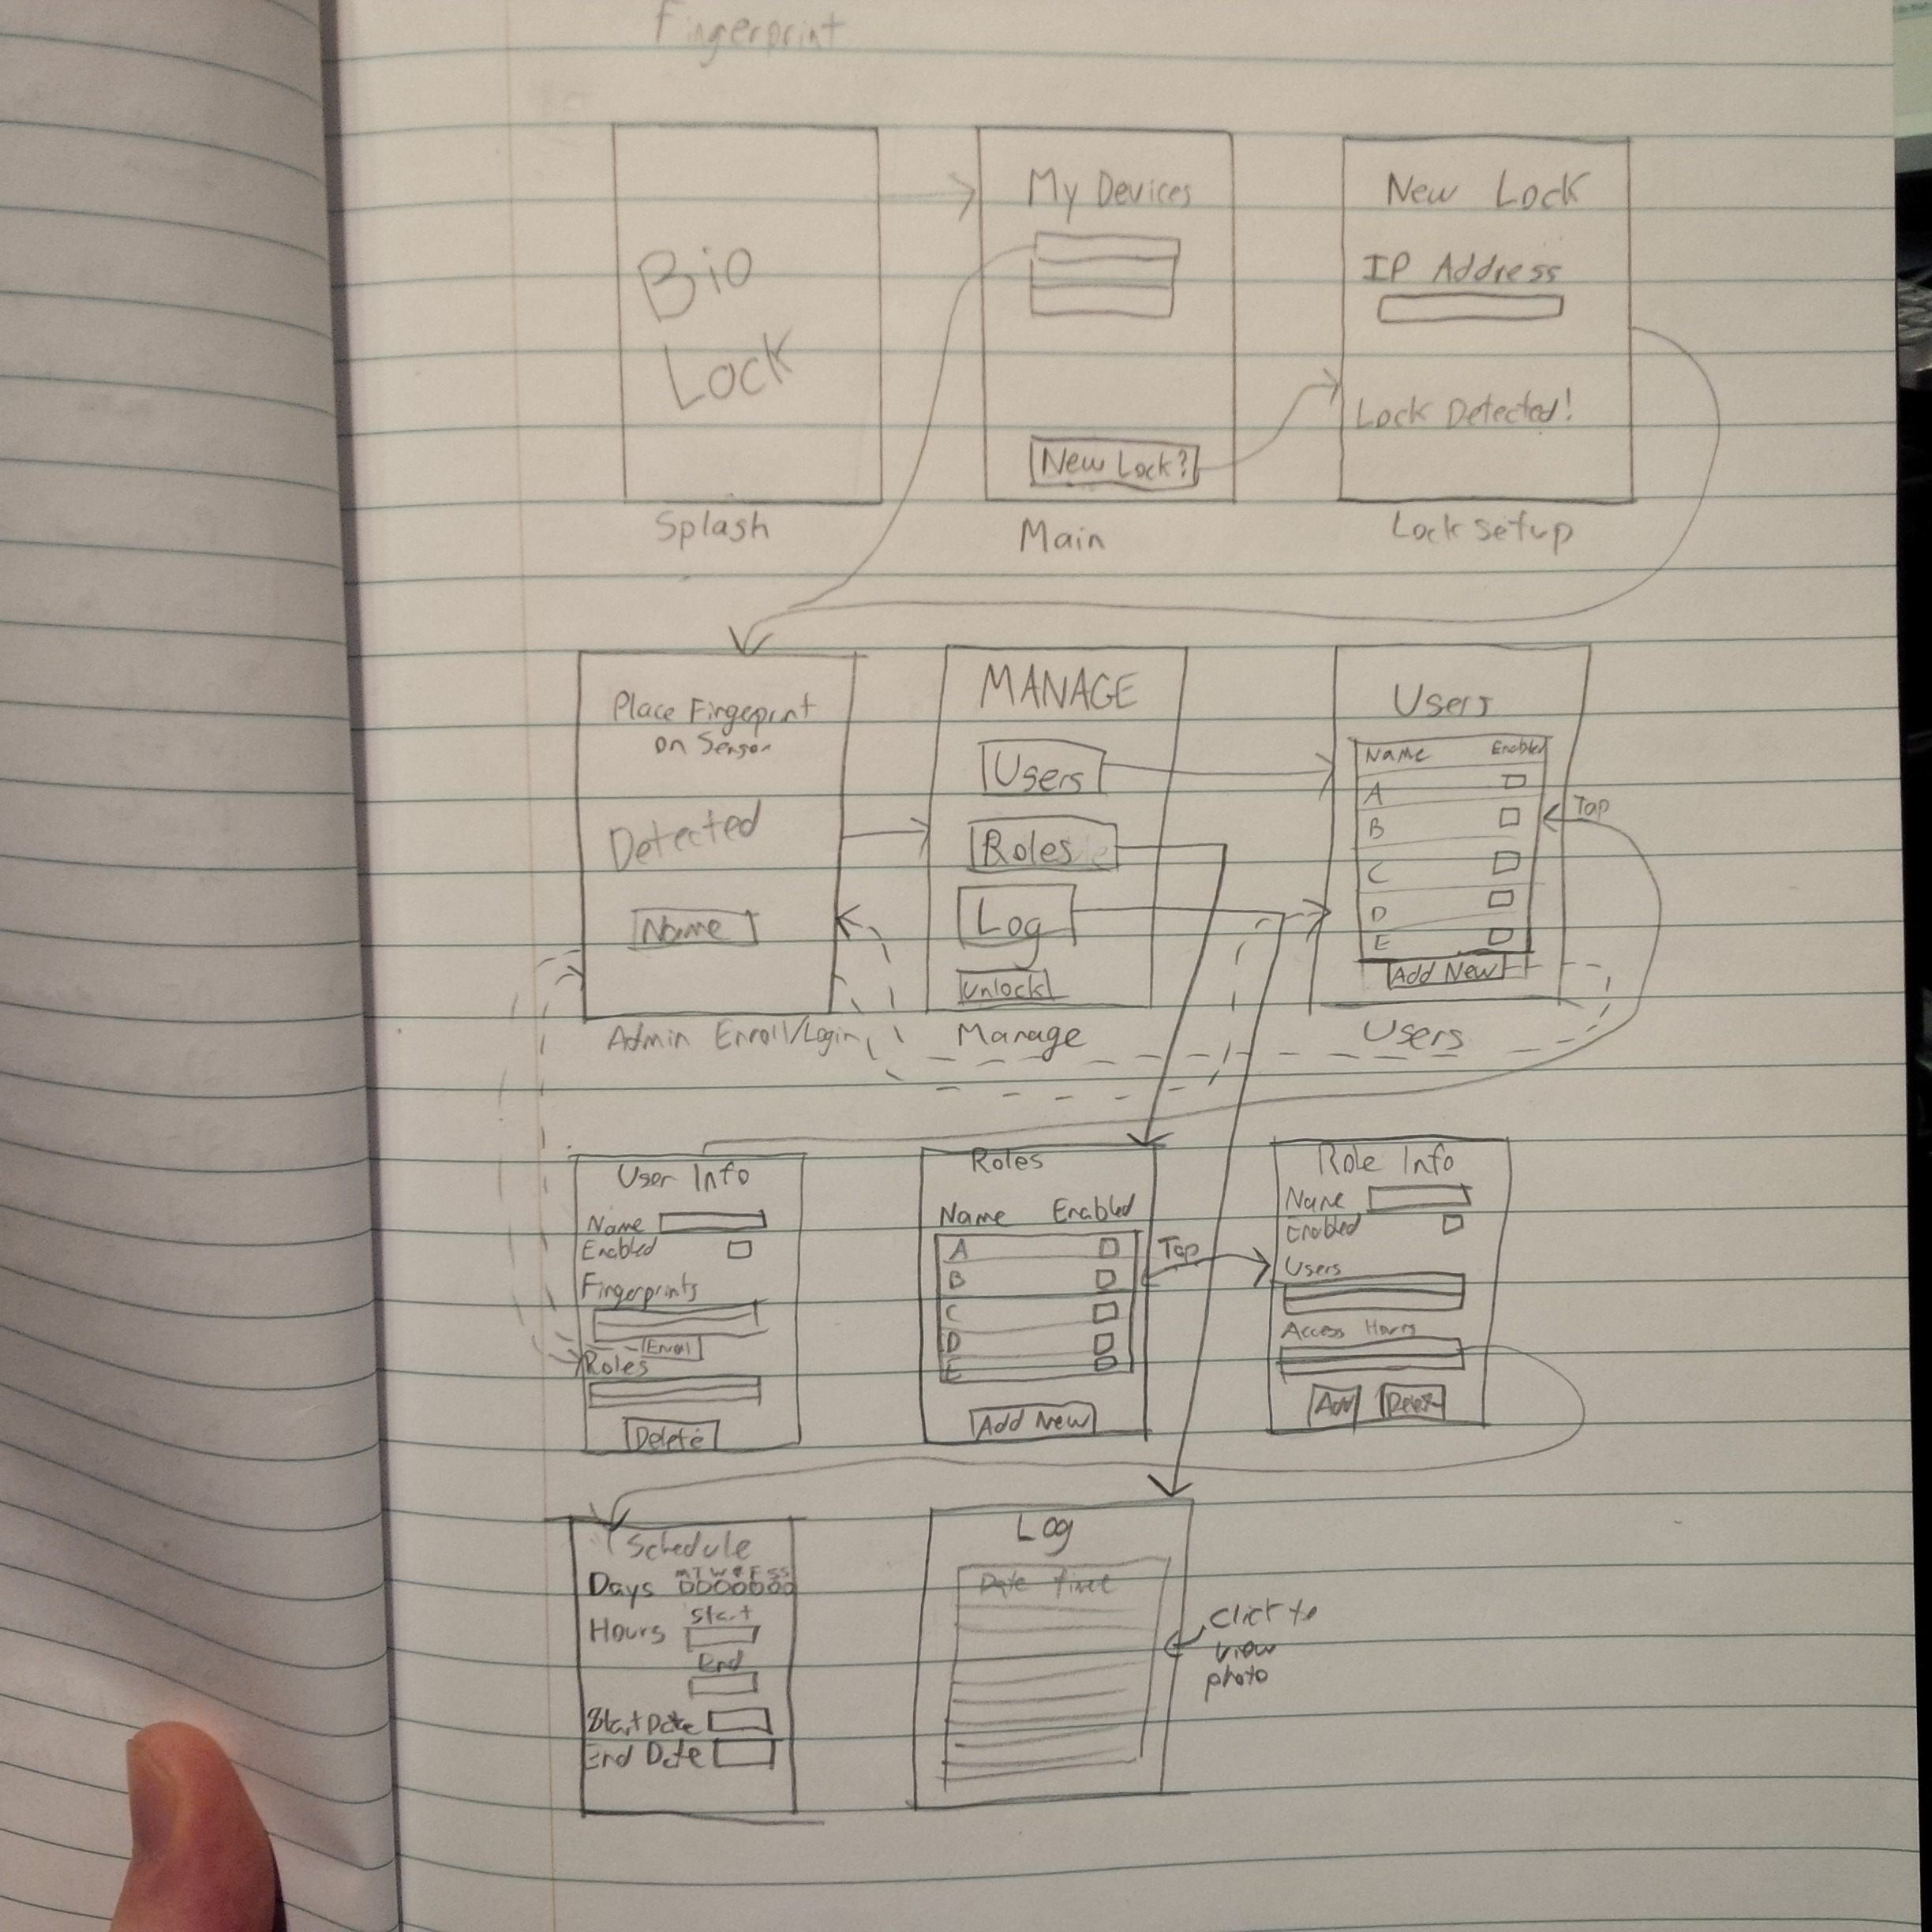 Fingerprint
Bio
Lock
Splash
My Devices
New Lock?
Main
New Lock
IP Address
Lock Detected!
Lock Setup
Place Fingeprint
on Sensor
Detected
Name
Admin Enroll/Login
MANAGE
Users
Roles
Log
Unlock
Manage
Users
Name Enabled
A
B
C
D
E
Add New
Tap
Users
User Info
Name
Enabled
Fingerprints
Enroll
Roles
Delete
Roles
Name Enabled
A
B
C
D
E
Add New
Tap
Role Info
Name
Enabled
Users
Access Hours
Add Delete
Schedule
M T W R F S S
Days
Start
Hours
End
Start Date
End Date
Log
Date Time
Click to
view
photo